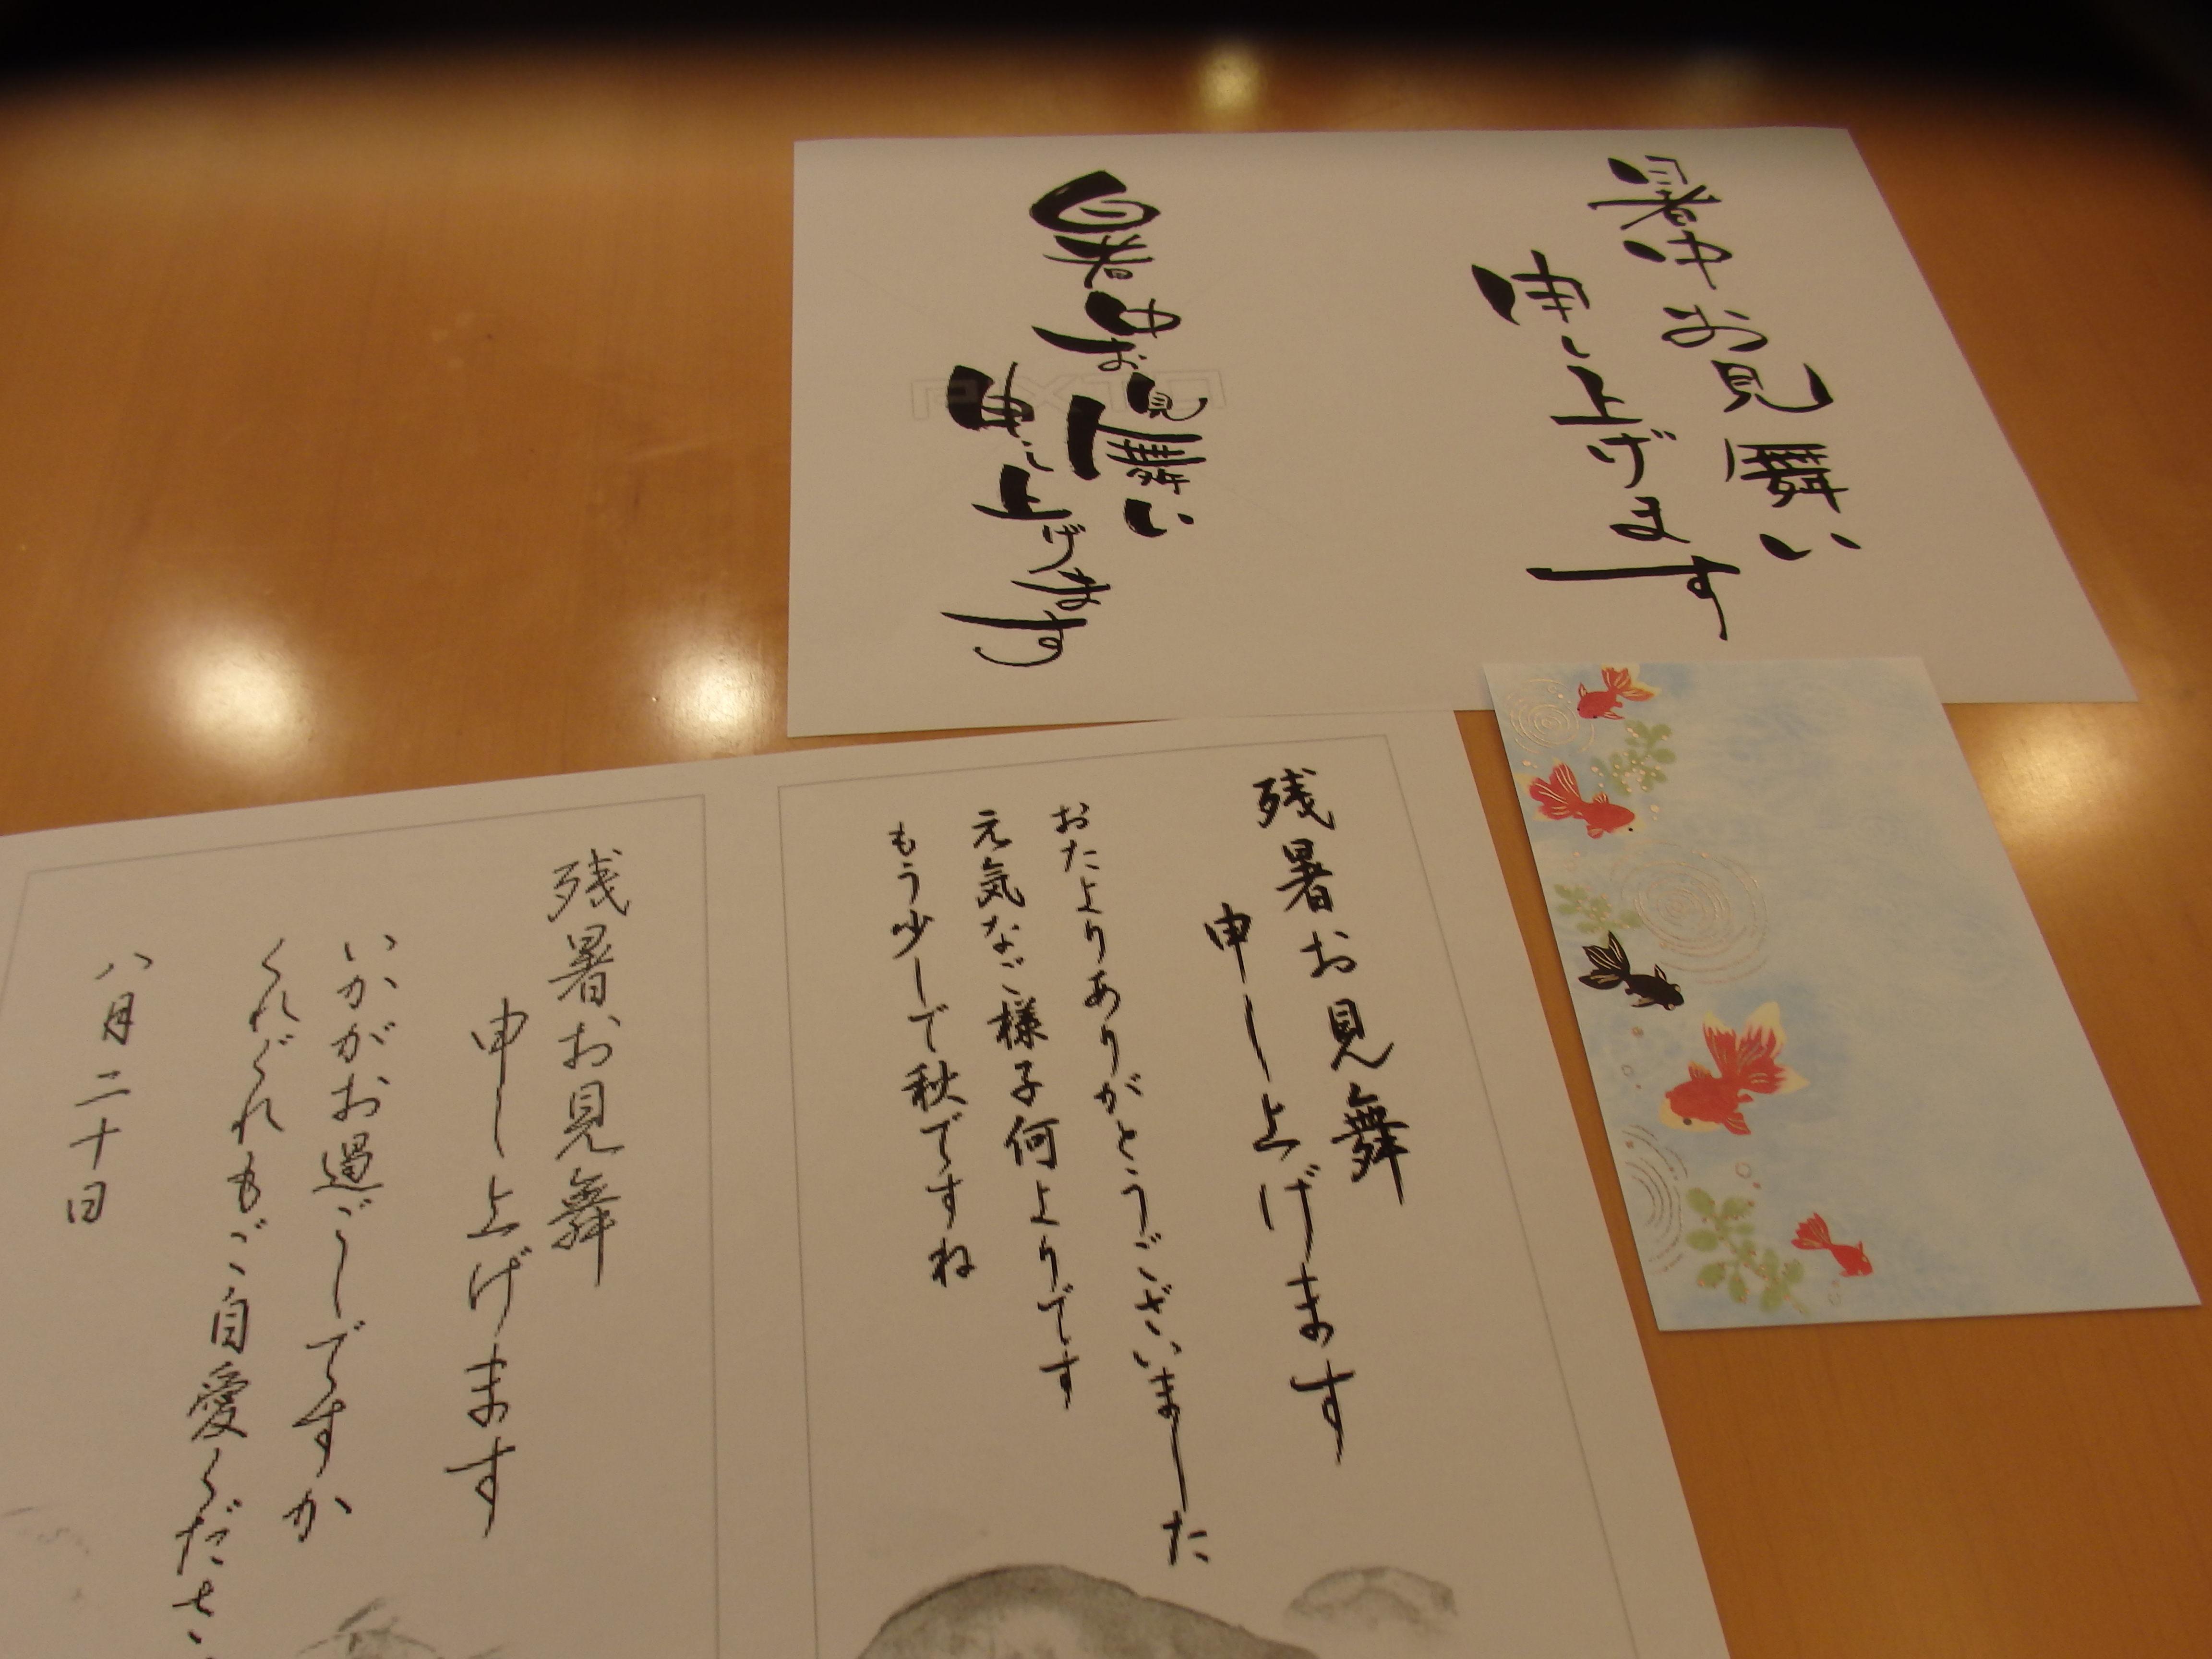 暑中お見舞い
申し上げます
暑中お見舞い
申し上げます
残暑お見舞
申し上げます
おたよりありがとうございました
元気なご様子何よりです
もう少しで秋ですね
残暑お見舞
申し上げます
いかがお過ごしですか
くれぐれもご自愛くださ
八月二十日